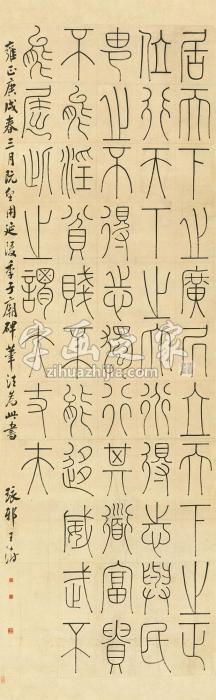 居天下之廣居立天下之正
位行天下之大道得志與民
由之不得志獨行其道富貴
不能淫貧賤不能移威武不
能屈此之謂大丈夫
雍正庚戌春三月既望用延陵季子廟碑筆法爲此書 琅邪王澍
字画之家
zihuazhijia.com